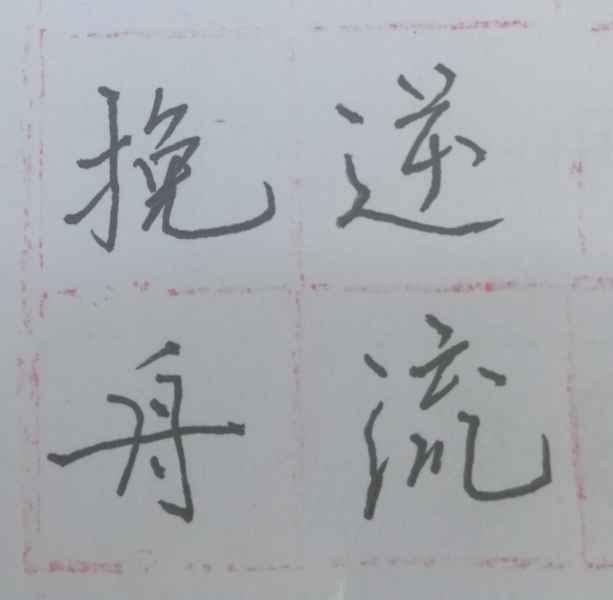 逆流
挽舟